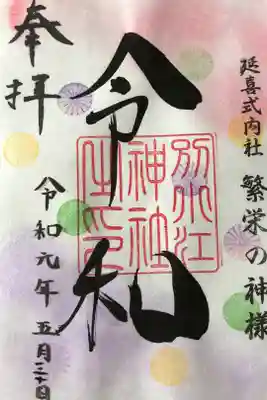 延喜式内社 繁栄の神様
令和
別小江
神社
之印
奉拝
令和元年五月三十日